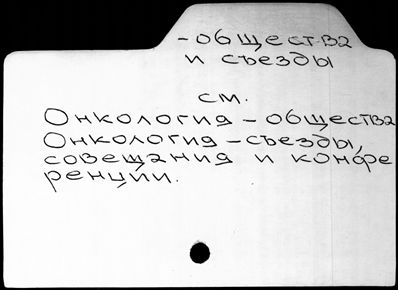 -общества
и съезды
см.
Онкология - общества
Онкология - съезды,
совещания и конфе
ренции.